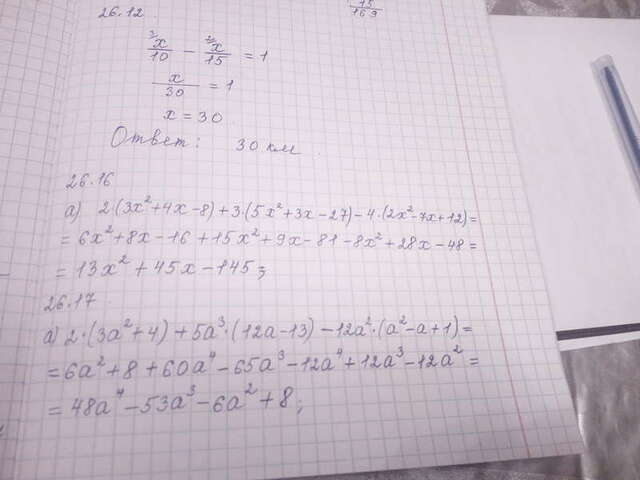 26.12
15/169
³x/10 − ²x/15 = 1
x/30 = 1
x = 30
Ответ: 30 км.
26.16
а) 2·(3x²+4x−8)+3·(5x²+3x−27)−4·(2x²−7x+12)=
=6x²+8x−16+15x²+9x−81−8x²+28x−48=
=13x²+45x−145;
26.17
а) 2·(3a²+4)+5a³·(12a−13)−12a²·(a²−a+1)=
=6a²+8+60a⁴−65a³−12a⁴+12a³−12a²=
=48a⁴−53a³−6a²+8;